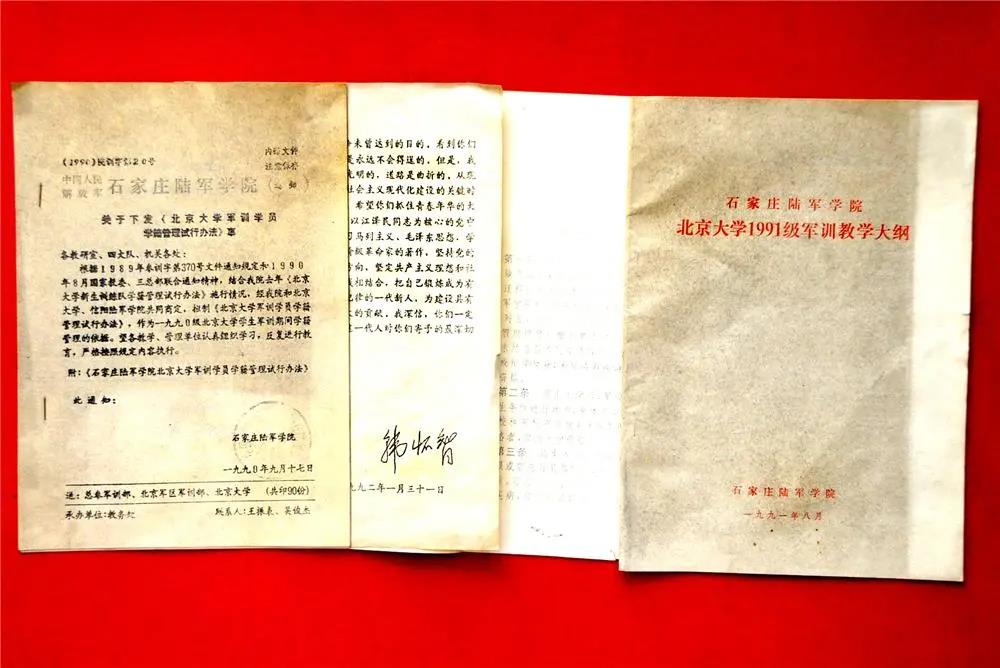 (1990)院训字第20号
内部文件
注意保存
中国人民
解放军 石家庄陆军学院(通知)
关于下发《北京大学军训学员
学籍管理试行办法》事
各教研室、四大队、机关各处:
根据1989年参训字第370号文件通知规定和1990
年8月国家教委、三总部联合通知精神,结合我院去年《北京
大学新生训练队学籍管理试行办法》施行情况,经我院和北京
大学、信阳陆军学院共同商定,拟制《北京大学军训学员学籍
管理试行办法》,作为一九九0级北京大学学生军训期间学籍
管理的依据。望各教学、管理单位认真组织学习,反复进行教
育,严格按照规定内容执行。
附:《石家庄陆军学院北京大学军训学员学籍管理试行办法》
此通知:
石家庄陆军学院
一九九0年九月十七日
送:总参军训部、北京军区军训部、北京大学 (共印90份)
承办单位:教务处 联系人:王振表、吴俊杰
未曾达到的目的,看到你们
是永远不会得逞的。但是,我
光明的,道路是曲折的,从现
社会主义现代化建设的关键时
希望你们抓住青春年华的大
以江泽民同志为核心的党中
习马列主义、毛泽东思想,学
级革命家的著作,坚持党的
方向,坚定共产主义理想和社
践相结合,把自己锻炼成为有
纪律的一代新人,为建设具有
的贡献。我深信,你们一定
一代人对你们寄予的殷深切
韩怀智
九二年一月三十一日
第二条
第三条
石家庄陆军学院
北京大学1991级军训教学大纲
石家庄陆军学院
一九九一年八月